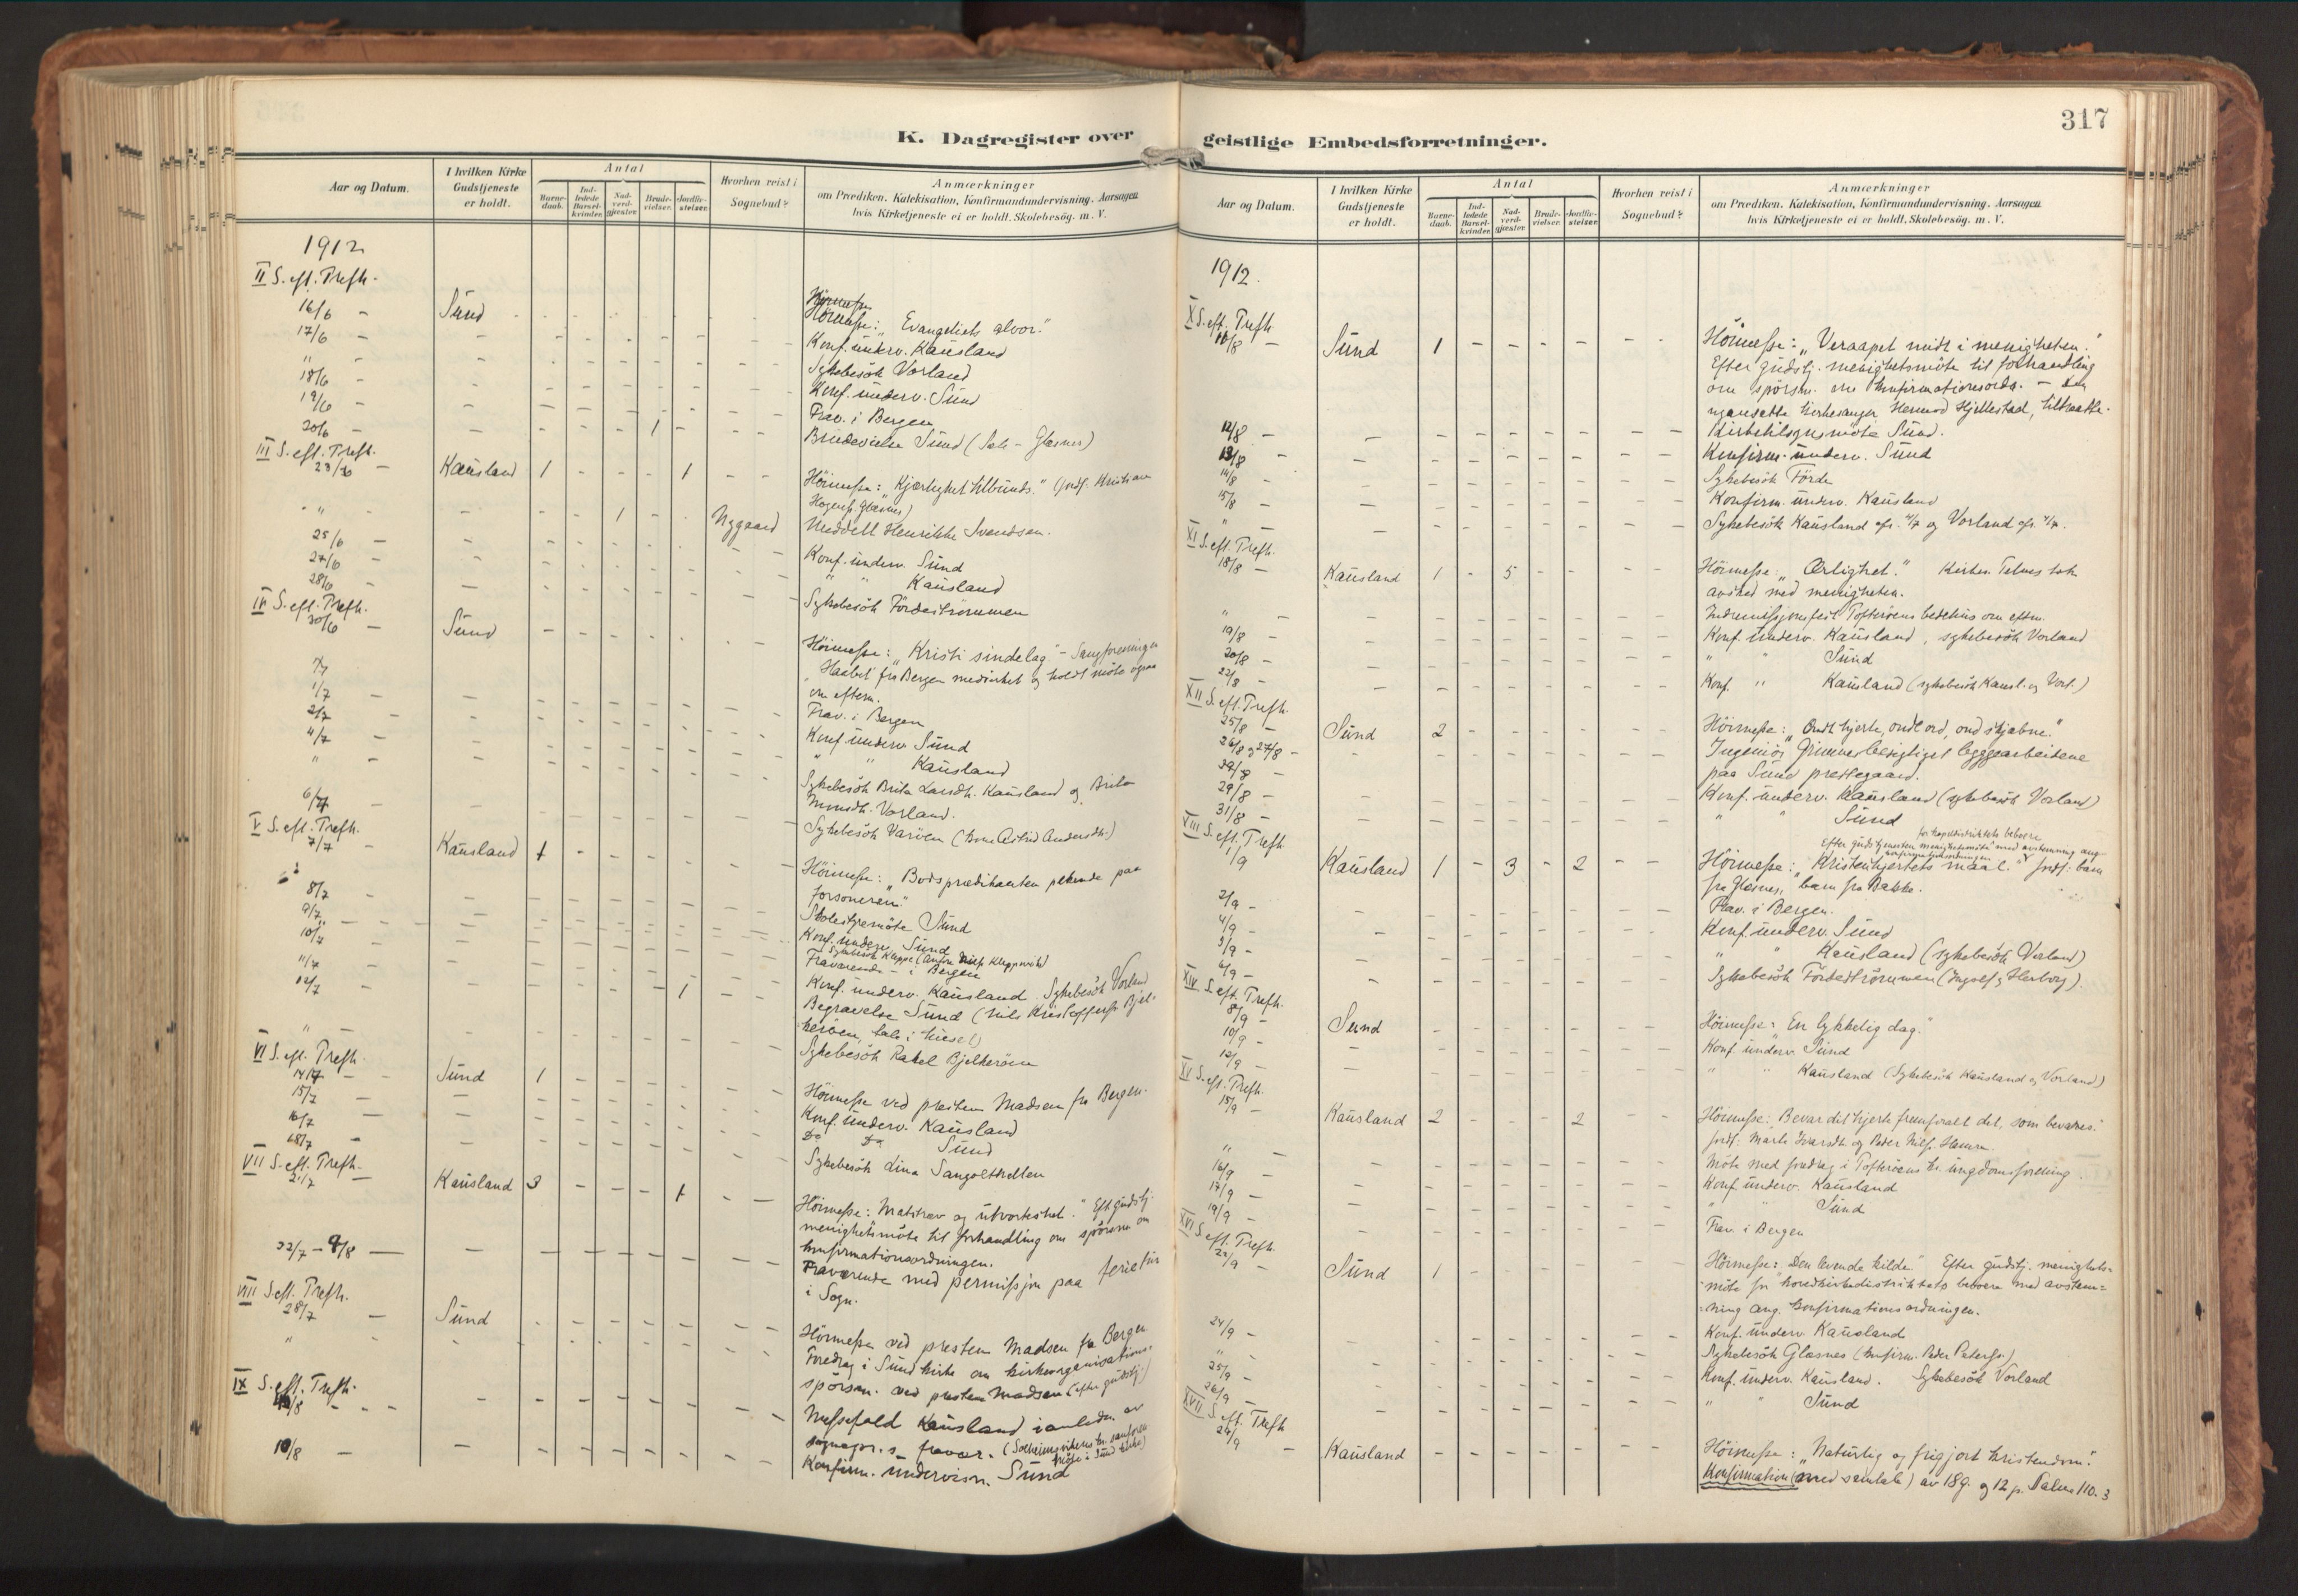 317
K. Dagregister over
Aar og Datum.
I hvilken Kirke Gudstjeneste er holdt.
Antal
Barnedaab.
Indledede Barselkvinder.
Nadverdgjæster.
Brudevielser.
Jordfæstelser.
Hvorhen reist i Sognebud?
Anmærkninger
om Prædiken. Katekisation, Konfirmandundervisning. Aarsagen
hvis Kirketjeneste ei er holdt. Skolebesøg. m. V.
1912
II S. eft. Trefh.
16/6 - Sund Höimesse: "Evangeliets alvor."
17/6 - Konf. underv. Kausland
" - Sykebesök Vorland
18/6 - Konf. underv. Sund
19/6 - Frav. i Bergen
20/6 - 1 Brudevielse Sund
III S. eft. Trefh.
23/6 - Kausland 1 1 Höimesse: Kjærlighet tilbunds." Jordf. Kristian
" 1 Nygaard Meddelt Henrikke Svendsen.
25/6 - Konf. underv. Sund
27/6 - " " Kausland
28/6 - Sykebesök Fördeströmmen
IV S. eft. Trefh.
30/6 - Sund Höimesse: "Kristi sindelag" - Sangforeningen
"Haabet" fra Bergen medvirket og holdt möte ogsaa
om efterm.
1/7 - Frav. i Bergen
2/7 - Konf. underv. Sund
4/7 - " " Kausland
" - Sykebesök Brita Larsdh. Kausland og Brita
Monsdh. Vorland.
6/7 - Sykebesök Varöen (kone Astrid Andersdh.)
V S. eft. Trefh.
7/7 - Kausland 1 Höimesse: Bodsprædikanten pekende paa
forsoneren."
8/7 - Skolestyremöte Sund
9/7 - Konf. underv. Sund
10/7 - Fraværende - i Bergen
11/7 - Konf. underv. Kausland. Sykebesök Vorland
12/7 - 1 Begravelse Sund (Nils Kristoffers. Bjel-
keröen, tale i huset)
" Sykebesök Rakel Bjelkeröen
VI S. eft. Trefh.
14/7 - Sund 1 Höimesse ved presten Madsen fra Bergen.
15/7 - Konf. underv. Kausland
16/7 - Do Do Sund
18/7 - Sykebesök Lina Sangolthellen
VII S. eft. Trefh.
21/7 - Kausland 3 1 Höimesse: Matstrev og utvorteshet." Eft. gudstj.
menighetsmöte til forhandling om spörsm. om
konfirmationsordningen.
22/7 - 9/8 - Fraværende med permissjon paa ferietur
i Sogn.
VIII S. eft. Trefh.
28/7 - Sund Höimesse ved presten Madsen fra Bergen
" " Foredrag i Sund kirke om kirkeorganisations-
spörsm. ved presten Madsen (efter gudstj.)
IX S. eft. Trefh.
Messefald Kausland i anledn. av
sognepr.s fravær.
10/8 - Konfirm. undervisn. Sund
geistlige Embedsforretninger.
Aar og Datum.
I hvilken Kirke Gudstjeneste er holdt.
Antal
Barnedaab.
Indledede Barselkvinder.
Nadverdgjæster.
Brudevielser.
Jordfæstelser.
Hvorhen reist i Sognebud?
Anmærkninger
om Prædiken. Katekisation, Konfirmandundervisning. Aarsagen
hvis Kirketjeneste ei er holdt. Skolebesøg. m. V.
1912.
X S. eft. Trefh.
11/8 - Sund 1 Höimesse: "Veraapet midt i menigheten."
Efter gudstj. menighetsmöte til forhandling
om spörsm. om konfirmationsordn. - Den
nyansatte kirkesanger Hermod Hjellestad, tiltraadte.
12/8 - Kirketilsynsmöte Sund.
13/8 - Konfirm. underv. Sund
14/8 - Sykebesök Förde
15/8 - Konfirm. underv. Kausland
" - Sykebesök Kausland og Vorland
XI S. eft. Trefh.
18/8 - Kausland 1 - 5 Höimesse: "Ærlighet." Kirkes. Telnes tok
avsked med menigheten.
" - Indremissjonsfest Tofteröens bedehus om eftm.
19/8 - Konf. underv. Kausland, sykebesök Vorland
20/8 - " " Sund
22/8 - Konf. " Kausland (sykebesök Kausl. og Vorl.)
XII S. eft. Trefh.
25/8 - Sund 2 Höimesse: "Ondt hjerte, ondt ord, ond skjæbne."
26/8 og 27/8 - Ingeniör Grimnes besigtiget lægggearbeidene
paa Sund prestegaard.
Konf. underv. Kausland (sykebesök Vorland)
29/8 -
31/8 - " " Sund
XIII S. eft. Trefh.
1/9 Kausland 1 - 3 - 2 Höimesse: "Kristenhjertets maal." Jordf: barn
Efter gudstjenesten menighetsmöte med avstemning ang. konfirmationsordningen
fra Glesnes, barn fra Bakke.
2/9 - Frav. i Bergen.
4/9 - Konf. underv. Sund
5/9 - " " Kausland (sykebesök Vorland)
6/9 - Sykebesök Fördeströmmen (Ingolf og Herborg).
XIV S. eft. Trefh.
8/9 - Sund Höimesse: En lykkelig dag."
10/9 - Konf. underv. Sund
12/9 - " " Kausland (Sykebesök Kausland og Vorland)
XV S. eft. Trefh.
15/9 - Kausland 2 2 Höimesse: "Bevar dit hjerte fremforalt det, som bevares."
Jordf: Marta Ivarsdt. og Peder Nils. Hamre.
" - Möte med foredrag i Tofteröens kr. ungdomsforening.
16/9 - Konf. underv. Kausland
17/9 - " " Sund
19/9 - Frav. i Bergen
XVI S. eft. Trefh.
22/9 - Sund 1 Höimesse: "Den levende kilde." Efter gudstj. menighets-
möte for hovedkirkedistriktets beboere med avstem-
ning ang. konfirmationsordningen.
24/9 - Konf. underv. Kausland
" - Sykebesök Glæsnes (konfirm. Peder Peders.)
25/9 - Konf. underv. Kausland. Sykebesök Vorland
26/9 - " " Sund
XVII S. eft. Trefh
29/9 - Kausland Höimesse: "Naturlig og frigjort kristendom."
Konfirmation (med samtale) av 18 g. og 12 p. Salme 110. 3